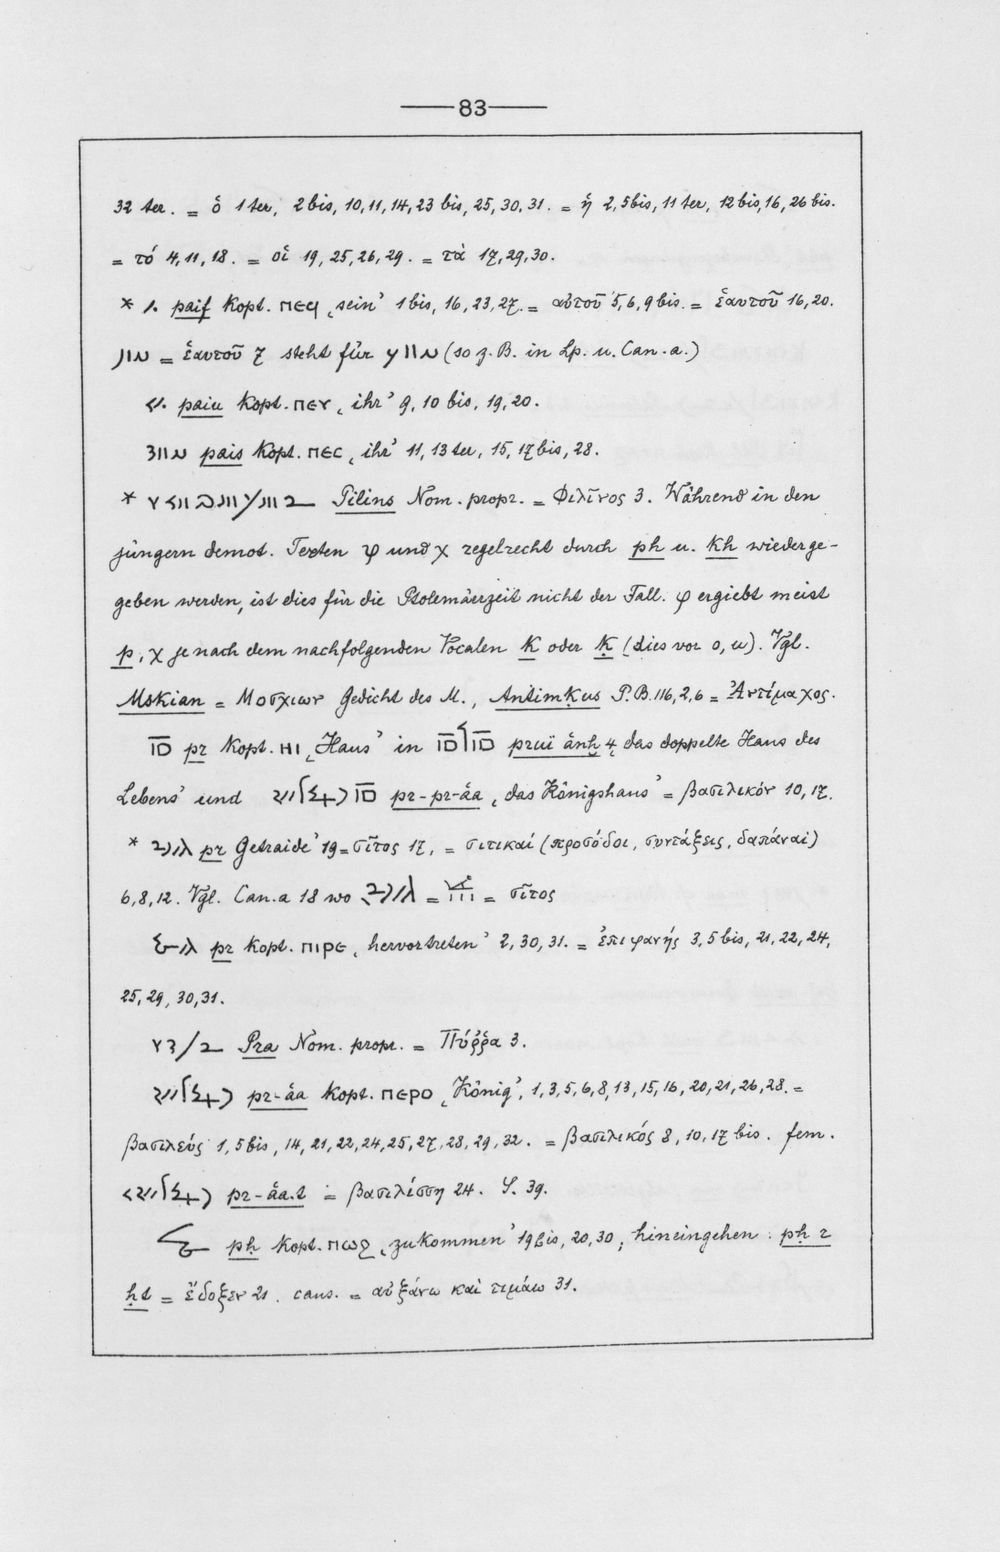 83
32 ter. = ὁ 1 ter, 2 bis, 10, 11, 14, 23 bis, 25, 30, 31. = ἡ 2, 5 bis, 11 ter, 12 bis, 16, 26 bis.
= τό 4, 11, 18. = οἱ 19, 25, 26, 29. = τὰ 17, 29, 30.
* paif Kopt. ⲡⲉϥ ‚sein’ 1 bis, 16, 23, 27. = αὐτοῦ 5, 6, 9 bis. = ἑαυτοῦ 16, 20.
= ἑαυτοῦ 7 steht für (so z. B. in Lp. u. Can. a.)
paiu Kopt. ⲡⲉⲩ ‚ihr’ 9, 10 bis, 19, 20.
pais Kopt. ⲡⲉⲥ ‚ihr’ 11, 13 ter, 15, 17 bis, 28.
* Pilins Nom. propr. = Φιλῖνος 3. Während in den
jüngern demot. Texten φ und χ regelrecht durch ph u. kh wiederge-
geben werden, ist dies für die Ptolemäerzeit nicht der Fall. φ ergiebt meist
p, χ je nach dem nachfolgenden Vocalen k oder ḳ (dies vor o, u). Vgl.
Mskian = Μοσχιων Gedicht des M., Antimḳus P. B. 116, 2, 6 = Ἀντίμαχος.
pr Kopt. ⲏⲓ ‚Haus’ in prui ānḫ 4 ‚das doppelte Haus des
Lebens’ und pr-pr-āa ‚das Königshaus’ = βασιλικόν 10, 17.
* pr Getraide’ 19 = σῖτος 17, = σιτικαί (προσόδοι, συντάξεις, δαπάναι)
6, 8, 12. Vgl. Can. a 18 wo = = σῖτος
pr Kopt. ⲡⲓⲣⲉ ‚hervortreten’ 2, 30, 31. = ἐπιφανής 3, 5 bis, 21, 22, 24,
25, 29, 30, 31.
Pra Nom. propr. = Πύῤῥα 3.
pr-āa Kopt. ⲡⲉⲣⲟ ‚König’, 1, 3, 5, 6, 8, 13, 15, 16, 20, 21, 26, 28. =
βασιλεύς 1, 5 bis, 14, 21, 22, 24, 25, 27, 28, 29, 32. = βασιλικός 8, 10, 17 bis. fem.
pr-āa.t = βασιλίσση 24. S. 39.
pḥ Kopt. ⲡⲱϩ ‚zukommen’ 19 bis, 20, 30; hineingehen: pḥ r
ḥt = ἔδοξεν 21. caus. = αὐξάνω καὶ τιμάω 31.